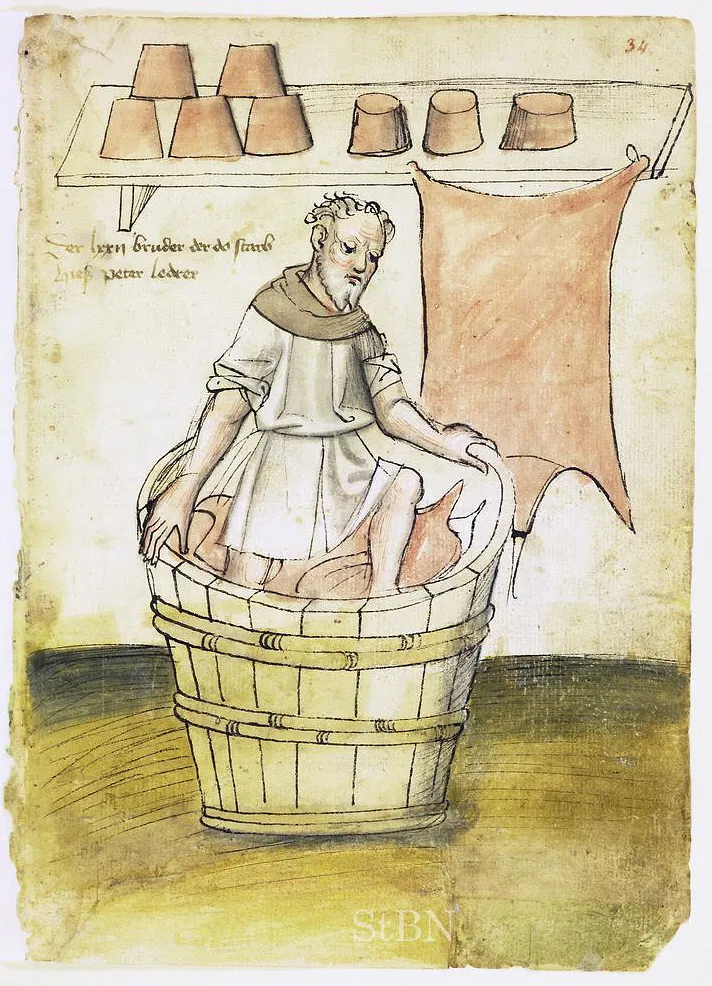 34.
Der lxxii bruder der do starb
hieß peter ledrer
StBN